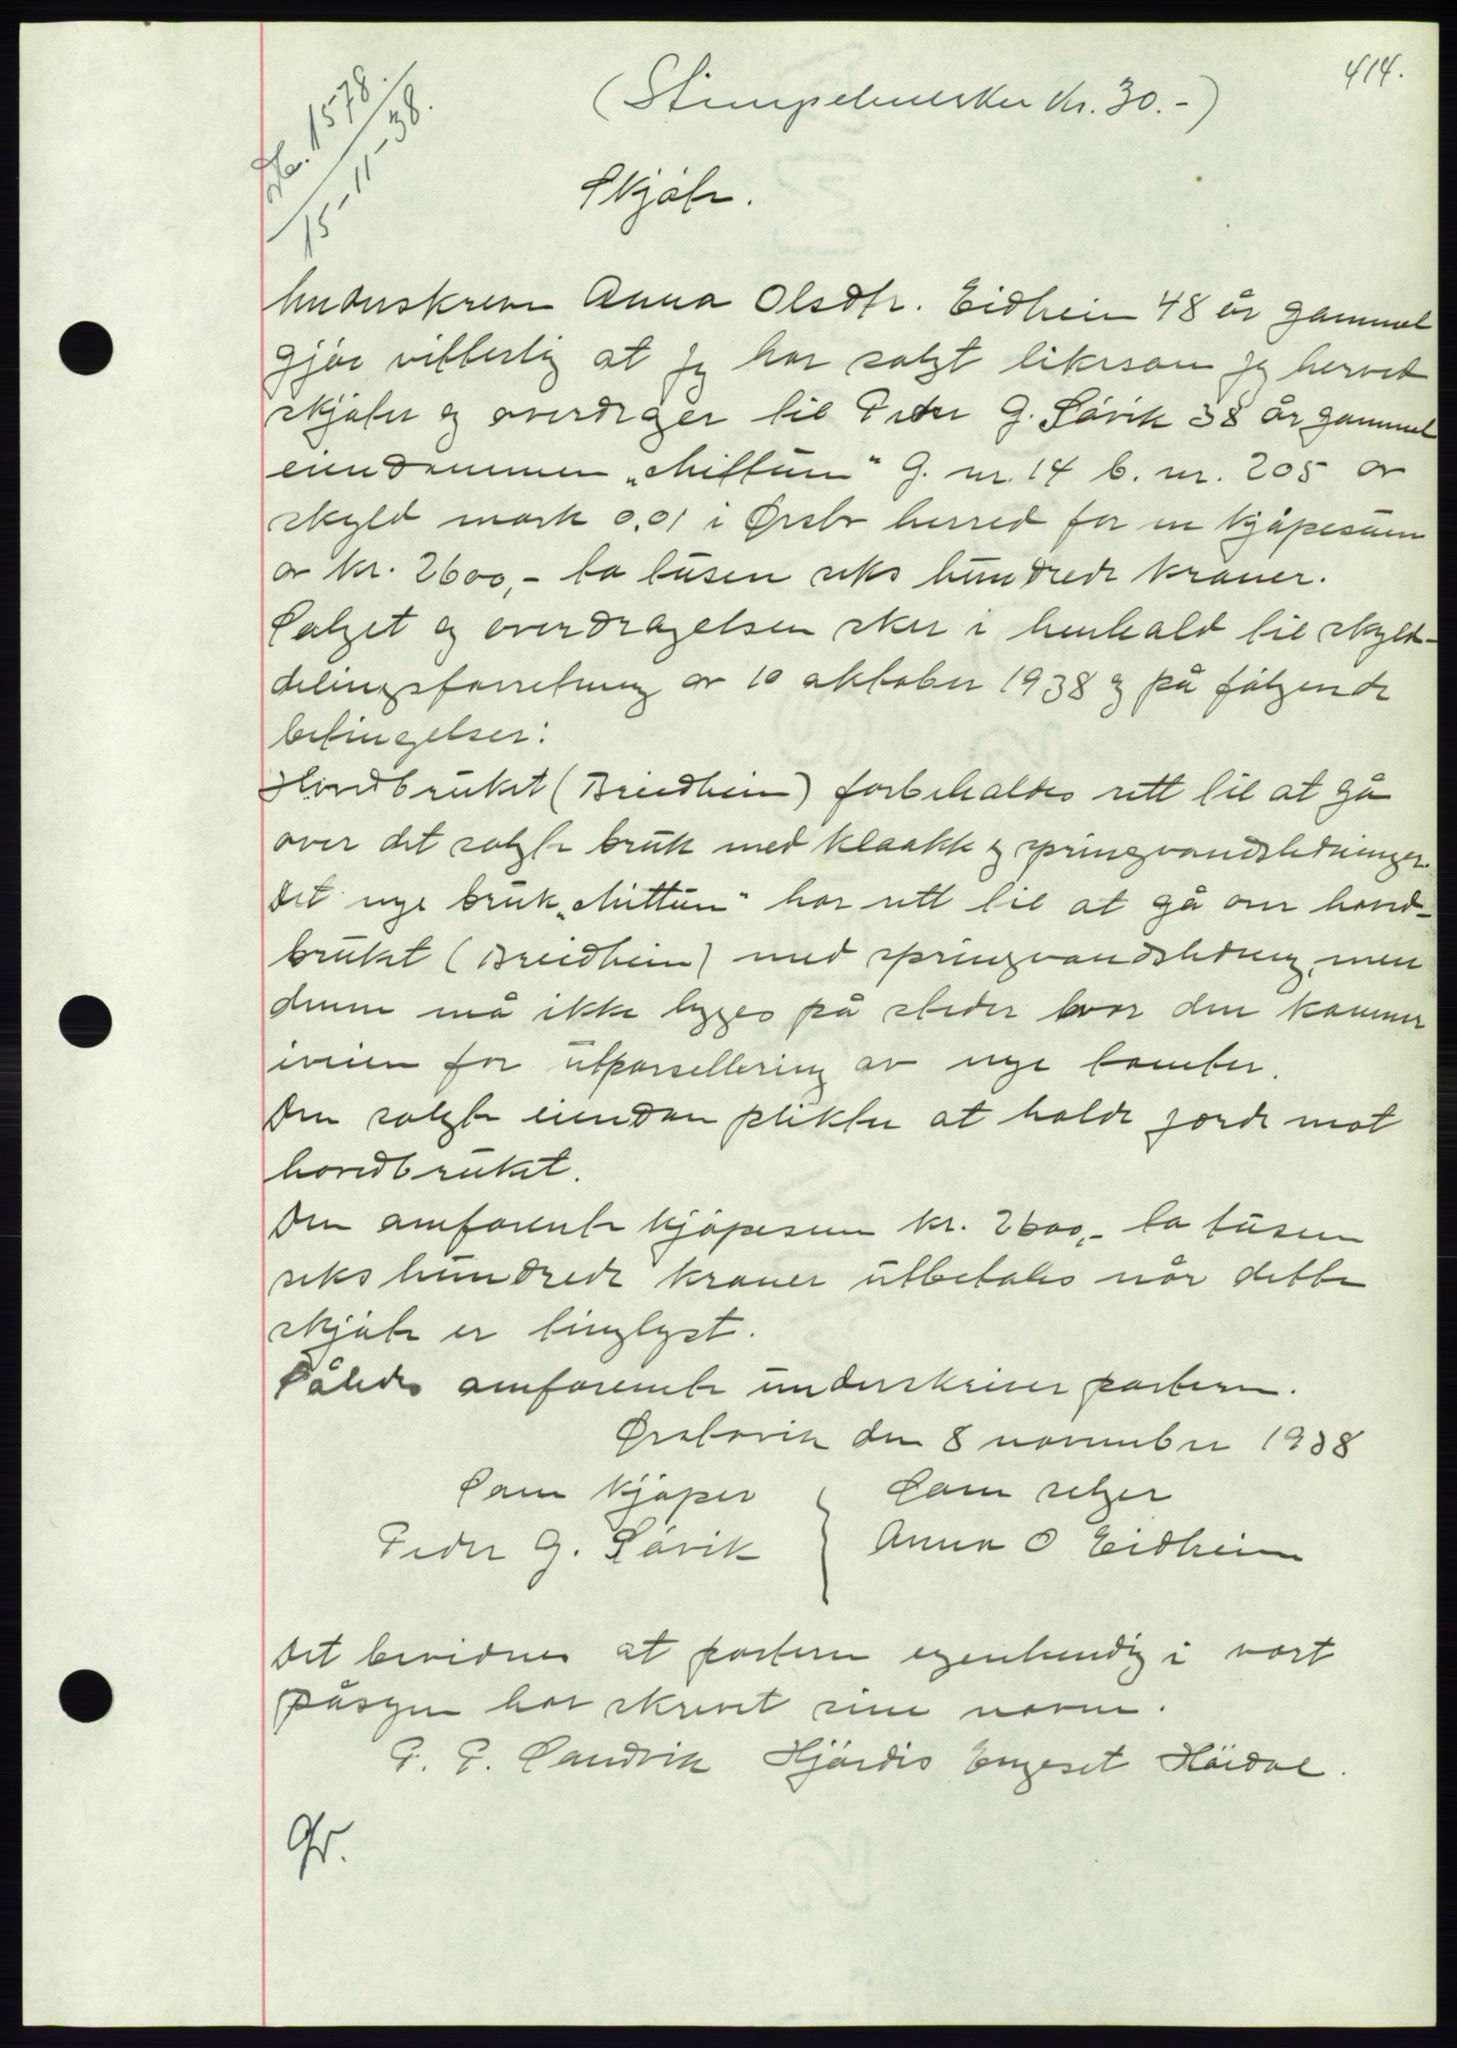 414.
(Stempelmerker kr. 30.-)
1578
15-11-38.
Skjöte.
Underskreven Anna Olsdtr. Eidheim 48 år gammel
gjör vitterlig at jeg har solgt likesom jeg herved
skjöter og overdrager til Peder G. Sövik 38 år gammel
eiendommen "Mittun" G. nr. 14 b. nr. 205 av
skyld mark 0,01 i Ørsta herred for en kjöpesum
av kr. 2600,- to tusen seks hundrede kroner.
Salget og overdragelsen sker i henhold til skyld-
delingsforretning av 10 oktober 1938 og på fölgende
betingelser:
Hovedbruket (Breidheim) forbeholdes rett til at gå
over det solgte bruk med kloakk og springvandsledninger.
Det nye bruk "Mittun" har rett til at gå over hoved-
bruket (Breidheim) med springvandsledning, men
denne må ikke legges på steder hvor den kommer
iveien for utparsellering av nye tomter.
Den solgte eiendom plikter at holde gjerde mot
hovedbruket.
Den omforente kjöpesum kr. 2600,- to tusen
seks hundrede kroner utbetales når dette
skjöte er tinglyst.
Således omforente underskriver partene.
Ørstavik den 8 november 1938
Som kjöper Som selger
Peder G. Sövik Anna O Eidheim
Det bevidnes at partene egenhendig i vort
påsyn har skrevet sine navne.
P. P. Sandvik Hjördis Engeset Höidal.
Gr.